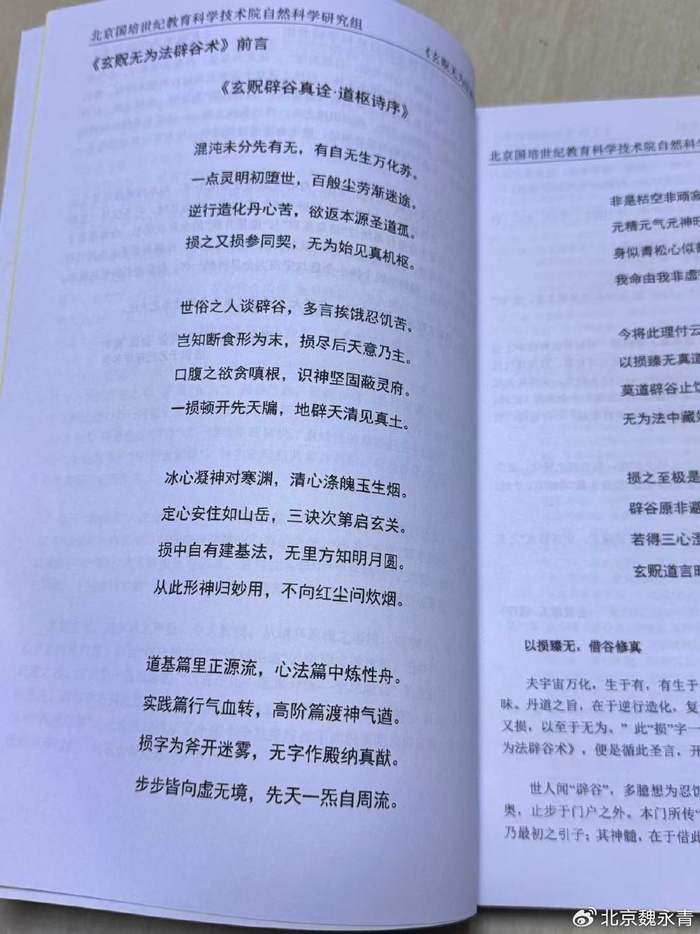 北京国培世纪教育科学技术院自然科学研究组
《玄贶无为法辟谷术》前言
《玄贶辟谷真诠·道枢诗序》
混沌未分先有无，有自无生万化苏。
一点灵明初堕世，百般尘劳渐迷途。
逆行造化丹心苦，欲返本源圣道孤。
损之又损参同契，无为始见真机枢。
世俗之人谈辟谷，多言挨饿忍饥苦。
岂知断食形为末，损尽后天意乃主。
口腹之欲贪嗔根，识神坚固蔽灵府。
一损顿开先天牖，地辟天清见真土。
冰心凝神对寒渊，清心涤魄玉生烟。
定心安住如山岳，三诀次第启玄关。
损中自有建基法，无里方知明月圆。
从此形神归妙用，不向红尘问炊烟。
道基篇里正源流，心法篇中炼性舟。
实践篇行气血转，高阶篇渡神气遒。
损字为斧开迷雾，无字作殿纳真猷。
步步皆向虚无境，先天一炁自周流。
《玄贶无为
北京国培世纪教育科学技术院自然科学
非是枯空非顽寂
元精元气元神旺
身似青松心似
我命由我非虚
今将此理付云
以损臻无真道
莫道辟谷止饥
无为法中藏
损之至极是
辟谷原非避
若得三心澄
玄贶道言昭
以损臻无，借谷修真
夫宇宙万化，生于有，有生于
昧。丹道之旨，在于逆行造化，复
又损，以至于无为。”此“损”字一
为法辟谷术》，便是循此圣言，开
世人闻“辟谷”，多臆想为忍饥
奥，止步于门户之外。本门所传“
乃最初之引子；其神髓，在于借此
@北京魏永青